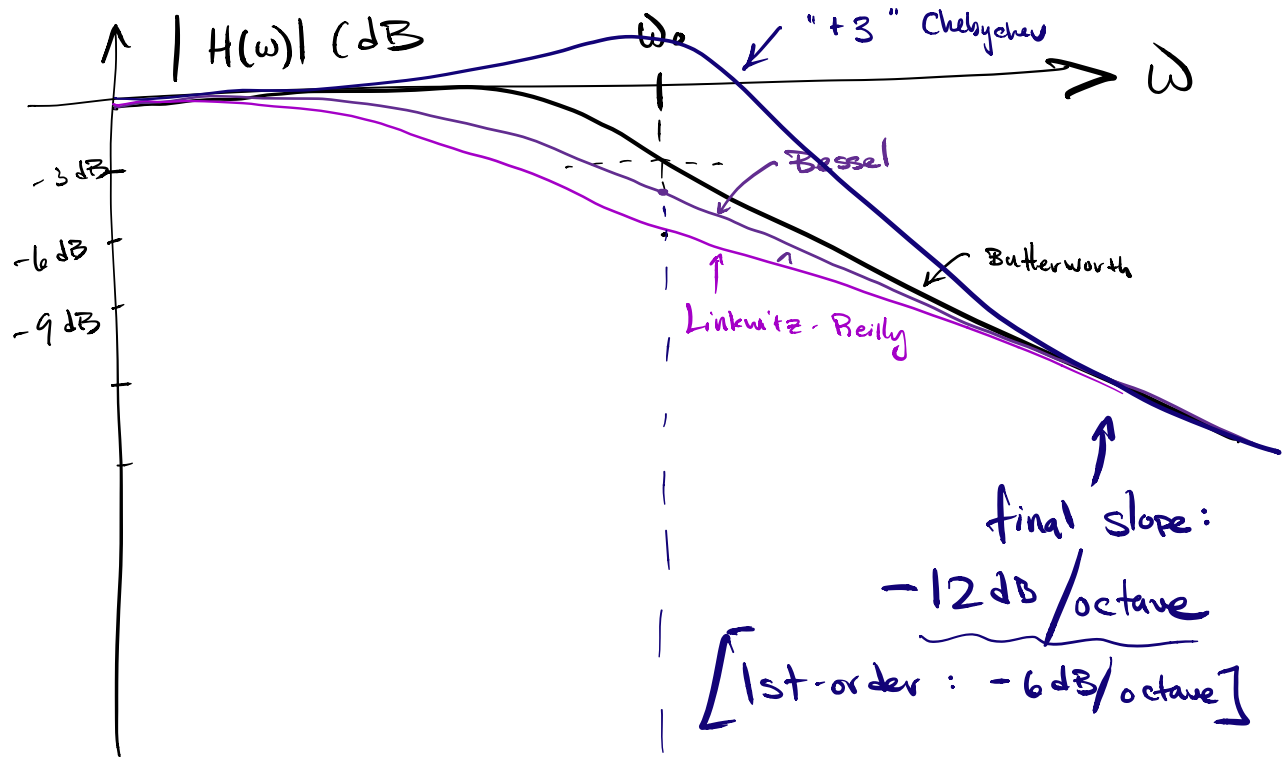 |H(ω)| (dB
ω₀
"+3" Chebychev
ω
-3 dB
-6 dB
-9 dB
Bessel
Butterworth
Linkwitz-Reilly
final slope:
-12 dB/octave
[1st-order : -6 dB/octave]